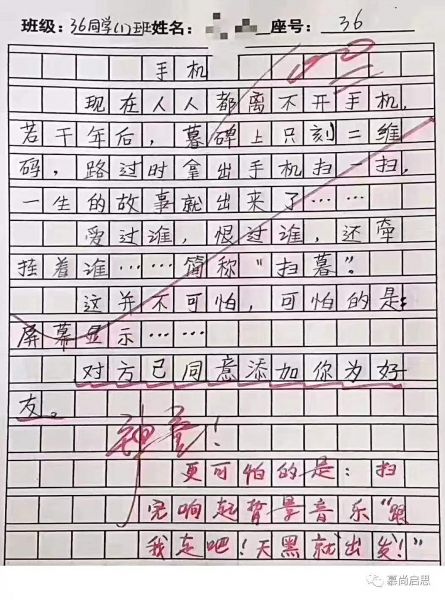 班级：36同学(1)班姓名： 座号：36
手机
现在人人都离不开手机，
若干年后，暮碑上只刻二维
码，路过时拿出手机扫一扫，
一生的故事就出来了……
爱过谁，恨过谁，还牵
挂着谁……简称“扫暮”。
这并不可怕，可怕的是：
屏幕显示……
对方已同意添加你为好
友。
神童！
更可怕的是：扫
完响起背景音乐“跟
我走吧！天黑就出发！”
慕尚启思